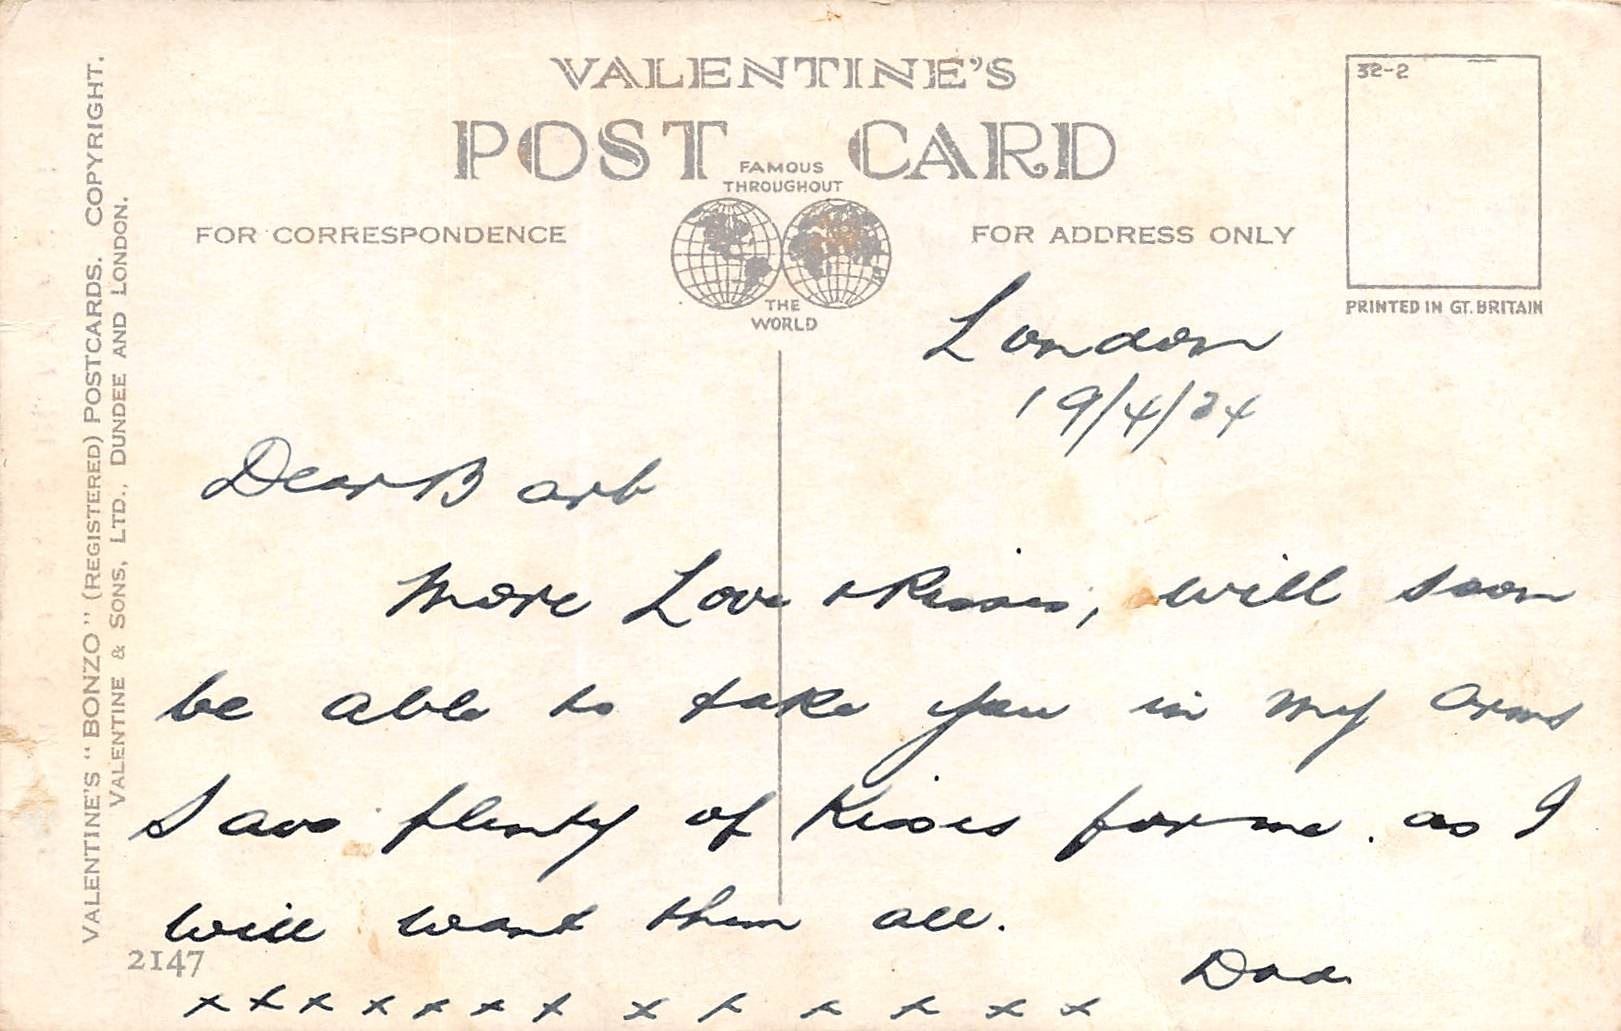 VALENTINE'S
POST CARD
FAMOUS
THROUGHOUT
THE
WORLD
FOR CORRESPONDENCE
FOR ADDRESS ONLY
32-2
PRINTED IN GT. BRITAIN
VALENTINE'S "BONZO" (REGISTERED) POSTCARDS. COPYRIGHT.
VALENTINE & SONS, LTD., DUNDEE AND LONDON.
London
19/4/34
Dear Barb
More Love & Kisses, will soon
be able to take you in my arms
Save plenty of Kisses for me. as I
will want them all.
Dad.
2147
x x x x x x x x x x x x x